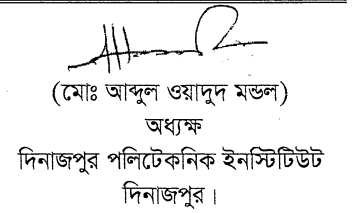 (মোঃ আব্দুল ওয়াদুদ মন্ডল)
অধ্যক্ষ
দিনাজপুর পলিটেকনিক ইনস্টিটিউট
দিনাজপুর।